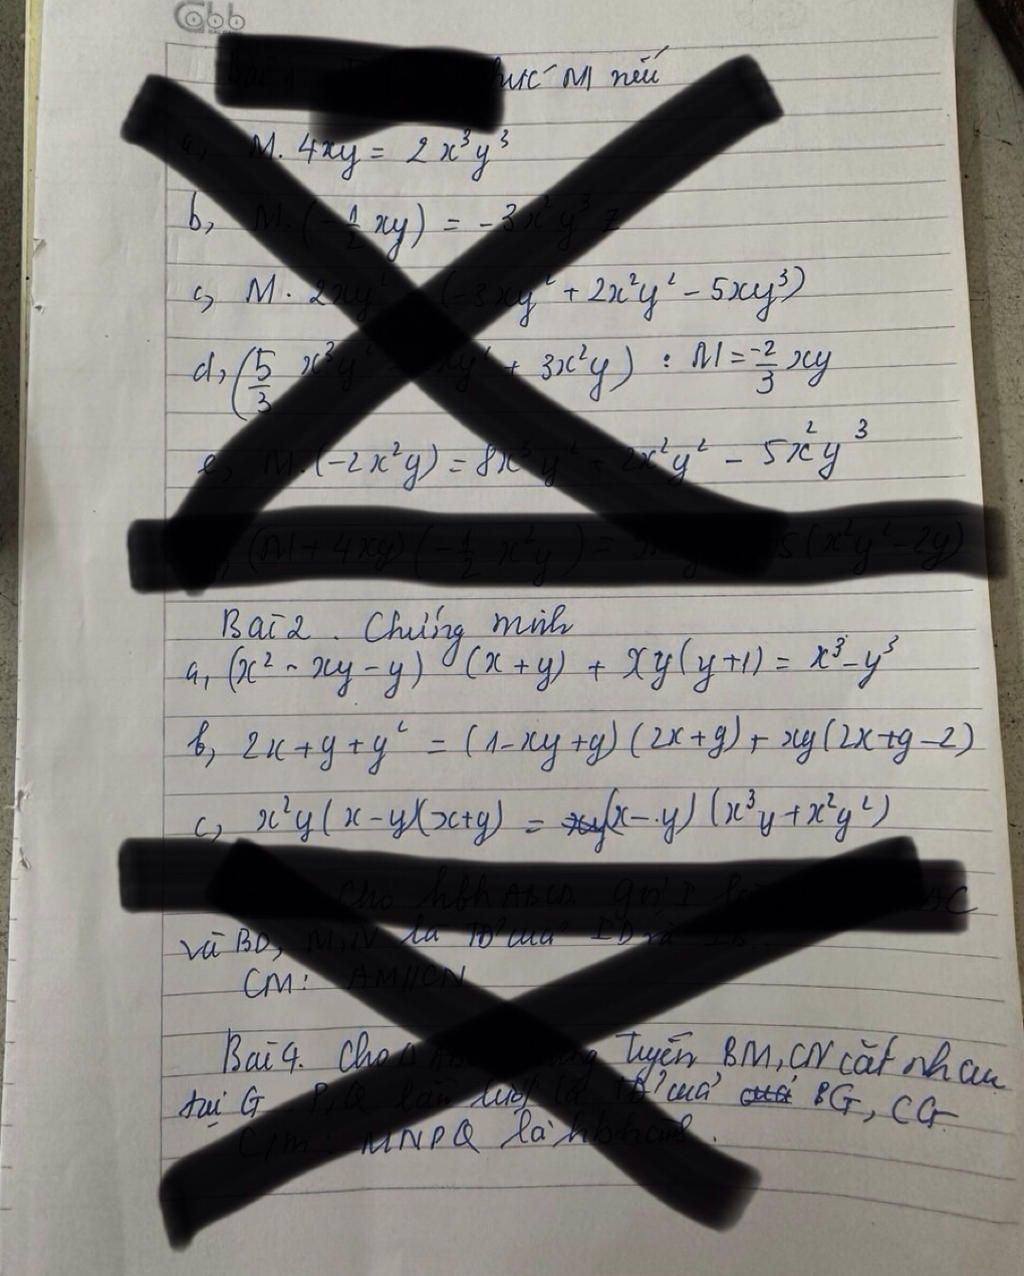 Cabb
M nếu
M. 4xy = 2x³y³
b, M. (-1/2 xy) = -3x²y³z
c, M. 2xy² (-3xy² + 2x²y² - 5xy³)
d, (5/3 x³y + 3x²y) : M = -2/3 xy
e, M.(-2x²y) = 8x³y² 2x²y² - 5x²y³
(M + 4xy)(-1/2 x²y) = 5(x²y² - 2y)
Bài 2. Chứng minh
a, (x² - xy - y) (x + y) + xy(y + 1) = x³ - y³
b, 2x + y + y² = (1 - xy + y)(2x + y) + xy(2x + y - 2)
c, x²y(x - y)(x + y) = (x - y)(x³y + x²y²)
Cho hbh ABCD. gọi I AC
và BD, M, N là TĐ của ID
CM: AM//CN
Bài 4. Cho tuyến BM, CN cắt nhau
tại G P, Q lần lượt là TĐ của BG, CG
C/m: MNPQ là hbhành.